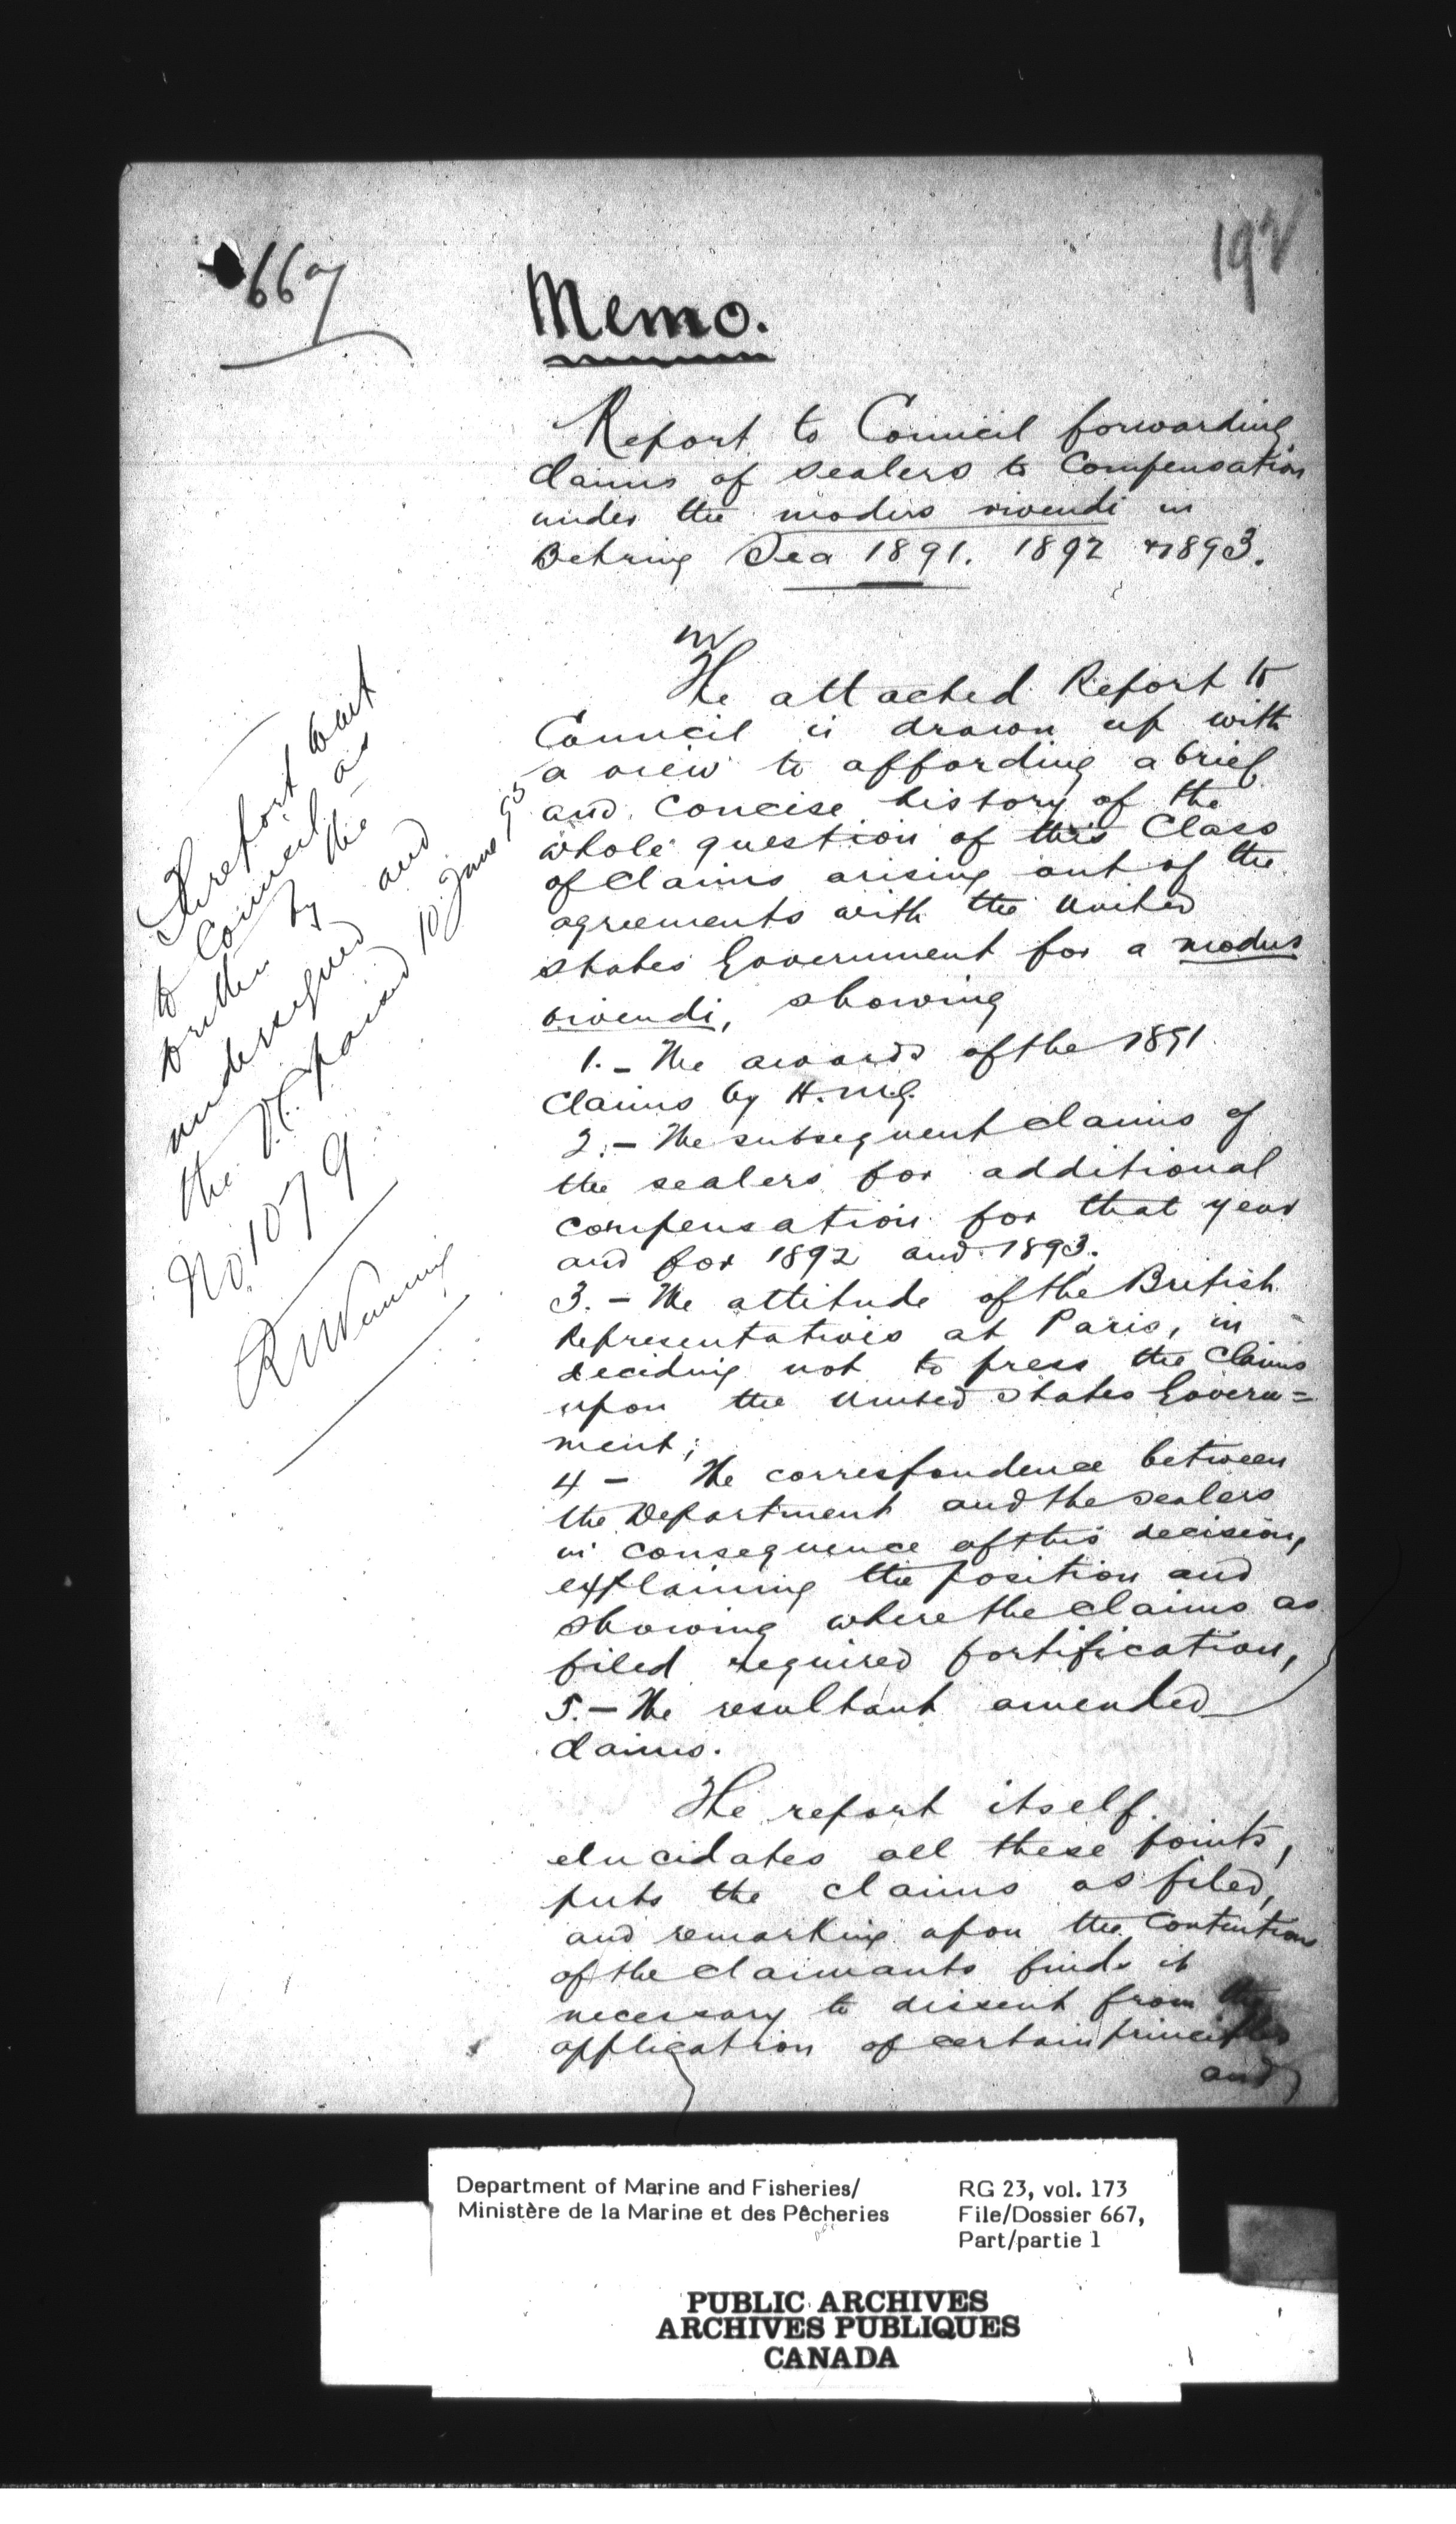 667
192
Memo.
Report to Council forwarding
claims of sealers to Compensation
under the modus vivendi in
Behring Sea 1891. 1892 & 1893.
The attached Report to
Council is drawn up with
a view to affording a brief
and concise history of the
whole question of this Class
of Claims arising out of the
agreements with the United
States Government for a modus
vivendi, showing
1. - The awards of the 1891
Claims by H.M.G.
2. - The subsequent claims of
the sealers for additional
compensation for that year
and for 1892 and 1893.
3. - The attitude of the British
Representatives at Paris, in
deciding not to press the Claims
upon the United States Govern=
ment;
4 - The correspondence between
the Department and the sealers
in consequence of this decision,
explaining the position and
showing where the claims as
filed required fortification,
5. - The resultant amended
claims.
The report itself
elucidates all these points,
puts the claims as filed,
and remarking upon the Contentions
of the claimants finds it
necessary to dissent from the
application of certain principles
and
report went
to Council as
written by the
undersigned and
the O.C. passed 10 June 95
No. 1079
Department of Marine and Fisheries/
Ministère de la Marine et des Pêcheries
RG 23, vol. 173
File/Dossier 667,
Part/partie 1
PUBLIC ARCHIVES
ARCHIVES PUBLIQUES
CANADA